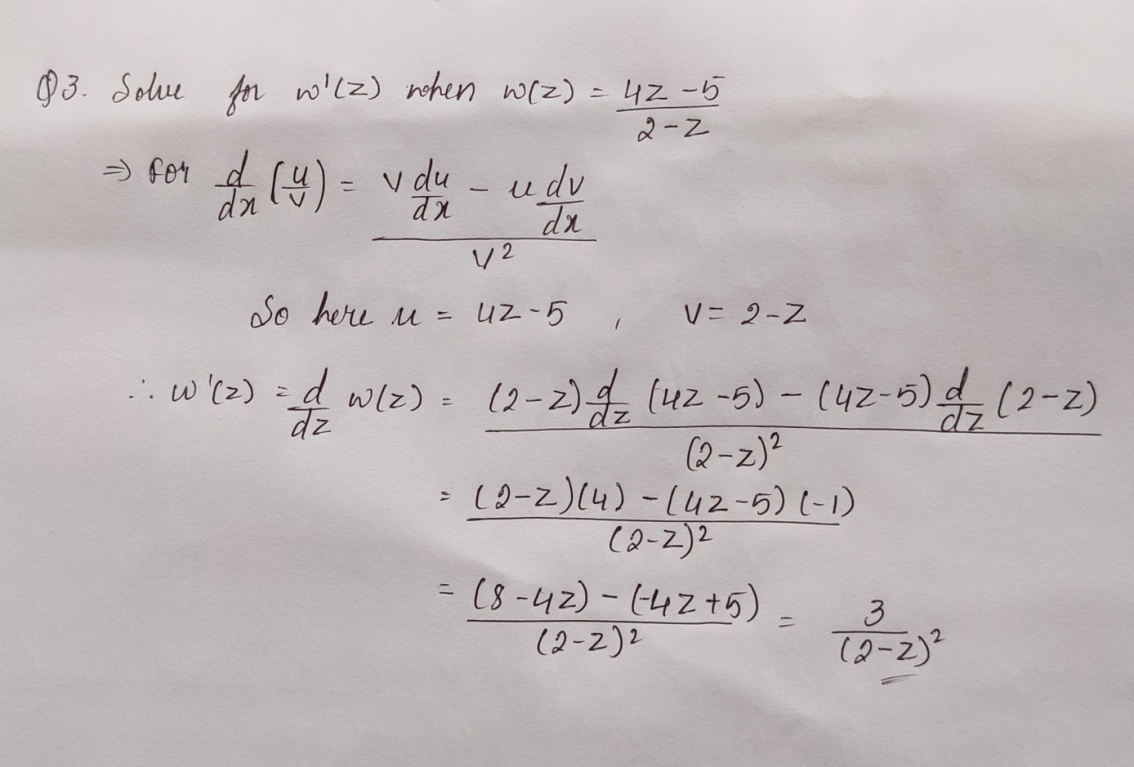 Q3. Solve for w'(z) when w(z) = (4z - 5)/(2 - z)
⇒ for d/dx (u/v) = (v du/dx - u dv/dx)/v²
So here u = 4z - 5 , v = 2 - z
∴ w'(z) = d/dz w(z) = ((2-z) d/dz (4z - 5) - (4z-5) d/dz (2-z))/(2-z)²
= ((2-z)(4) - (4z-5)(-1))/(2-z)²
= ((8-4z) - (-4z+5))/(2-z)² = 3/(2-z)²